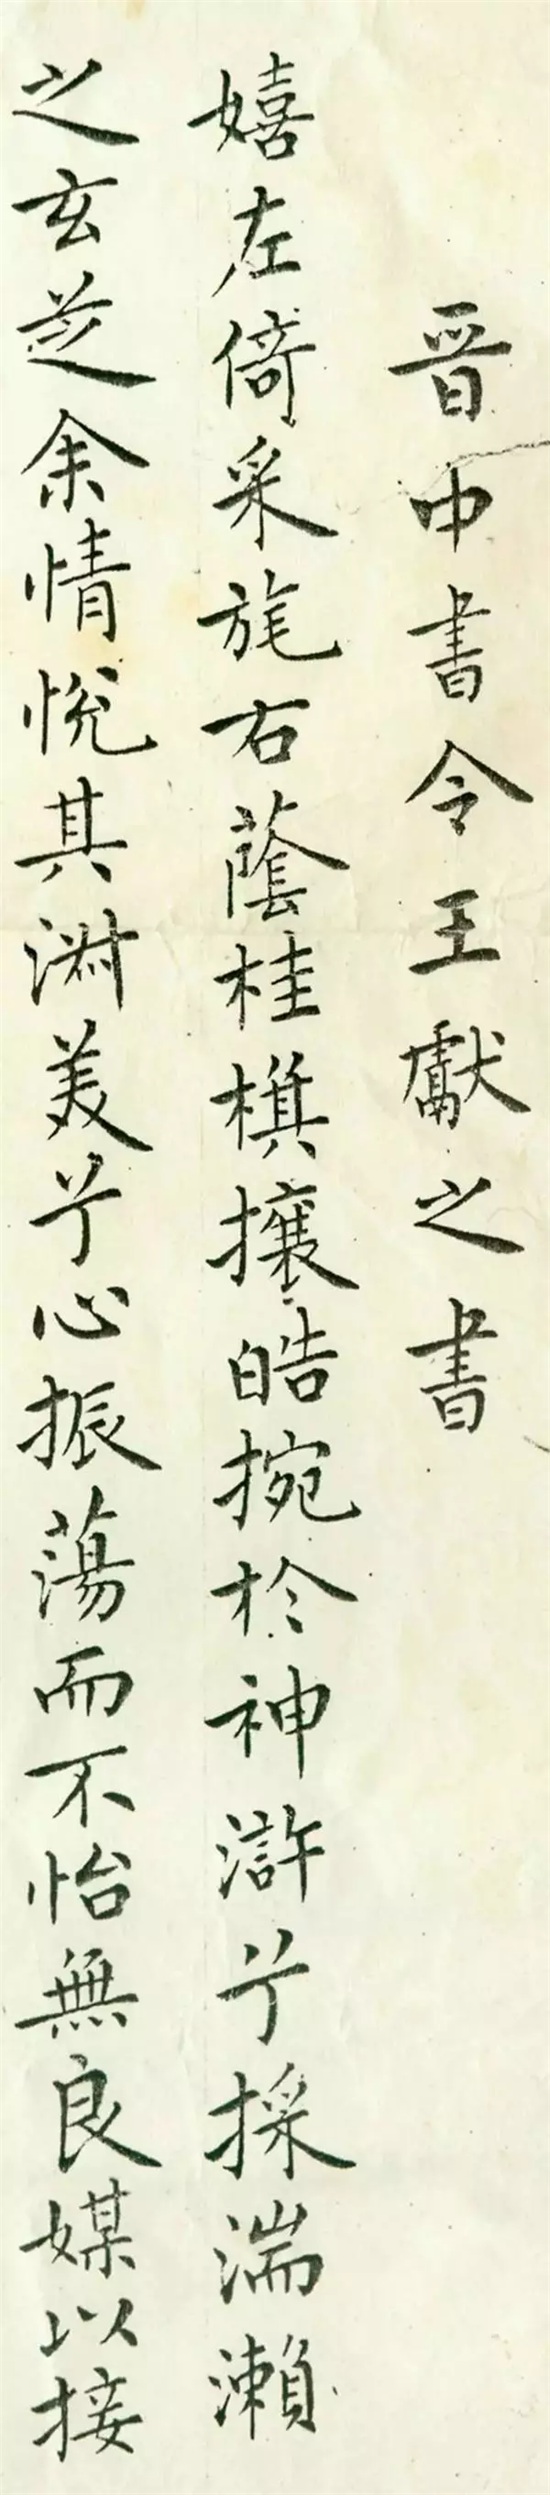 晉中書令王獻之書
嬉左倚采旄右蔭桂棋攘皓捥於神滸兮採湍瀨
之玄芝余情悅其淑美兮心振蕩而不怡無良媒以接